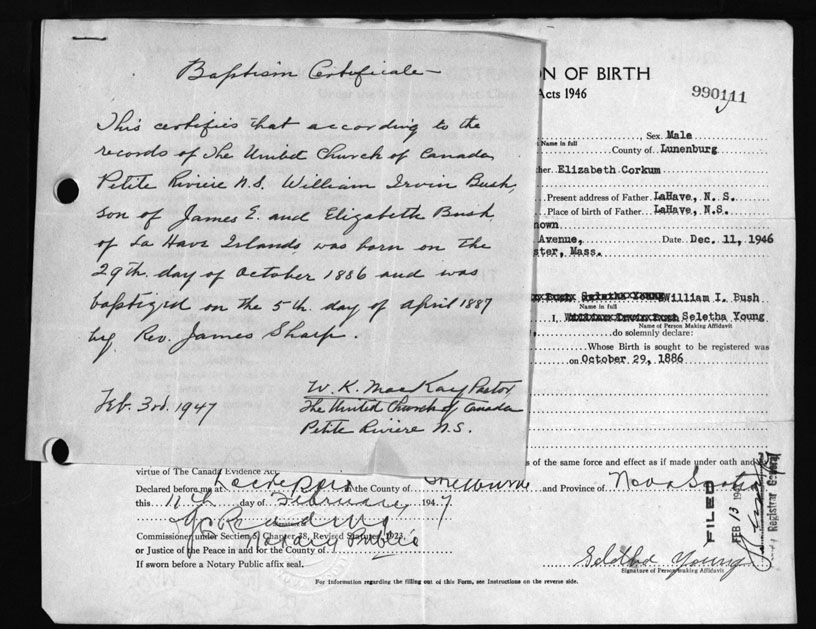 Baptism Certificate
This certifies that according to the
records of The United Church of Canada
Petite Riviere N.S. William Irvin Bush,
son of James E. and Elizabeth Bush
of La Have Islands, was born on the
29th. day of October 1886 and was
baptized on the 5th. day of April 1887
by Rev. James Sharp.
Feb. 3rd. 1947
W. K. MacKay Pastor
The United Church of Canada
Petite Riviere N.S.
ON OF BIRTH
Acts 1946
990111
Sex Male
Name in full
County of Lunenburg
her Elizabeth Corkum
Present address of Father LaHave, N. S.
Place of birth of Father LaHave, N.S.
nown
Avenue, Date Dec. 11, 1946
ster, Mass.
William I. Bush
Name in full
I, Seletha Young
Name of Person Making Affidavit
do solemnly declare:
Whose Birth is sought to be registered was
on October 29, 1886
s of the same force and effect as if made under oath and
virtue of The Canada Evidence Act.
Declared before me at Lockeport in the County of Shelburne and Province of Nova Scotia
this 11th day of February 1947
Notary Public
Commissioner under Section 5, Chapter 38, Revised Statutes, 1923,
or Justice of the Peace in and for the County of
If sworn before a Notary Public affix seal.
FILED
FEB 13 194
Registrar General
Seletha Young
Signature of Person Making Affidavit
For Information regarding the filling out of this Form, see Instructions on the reverse side.